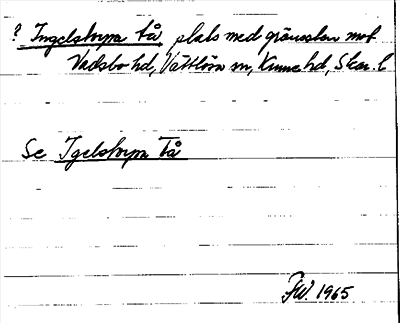 ? Ingelstorpa tå plats med gränssten mot
Vadsbo hd, Vättlösa sn, Kinne hd, Skar. l
Se Igelstorpa tå
FW. 1965